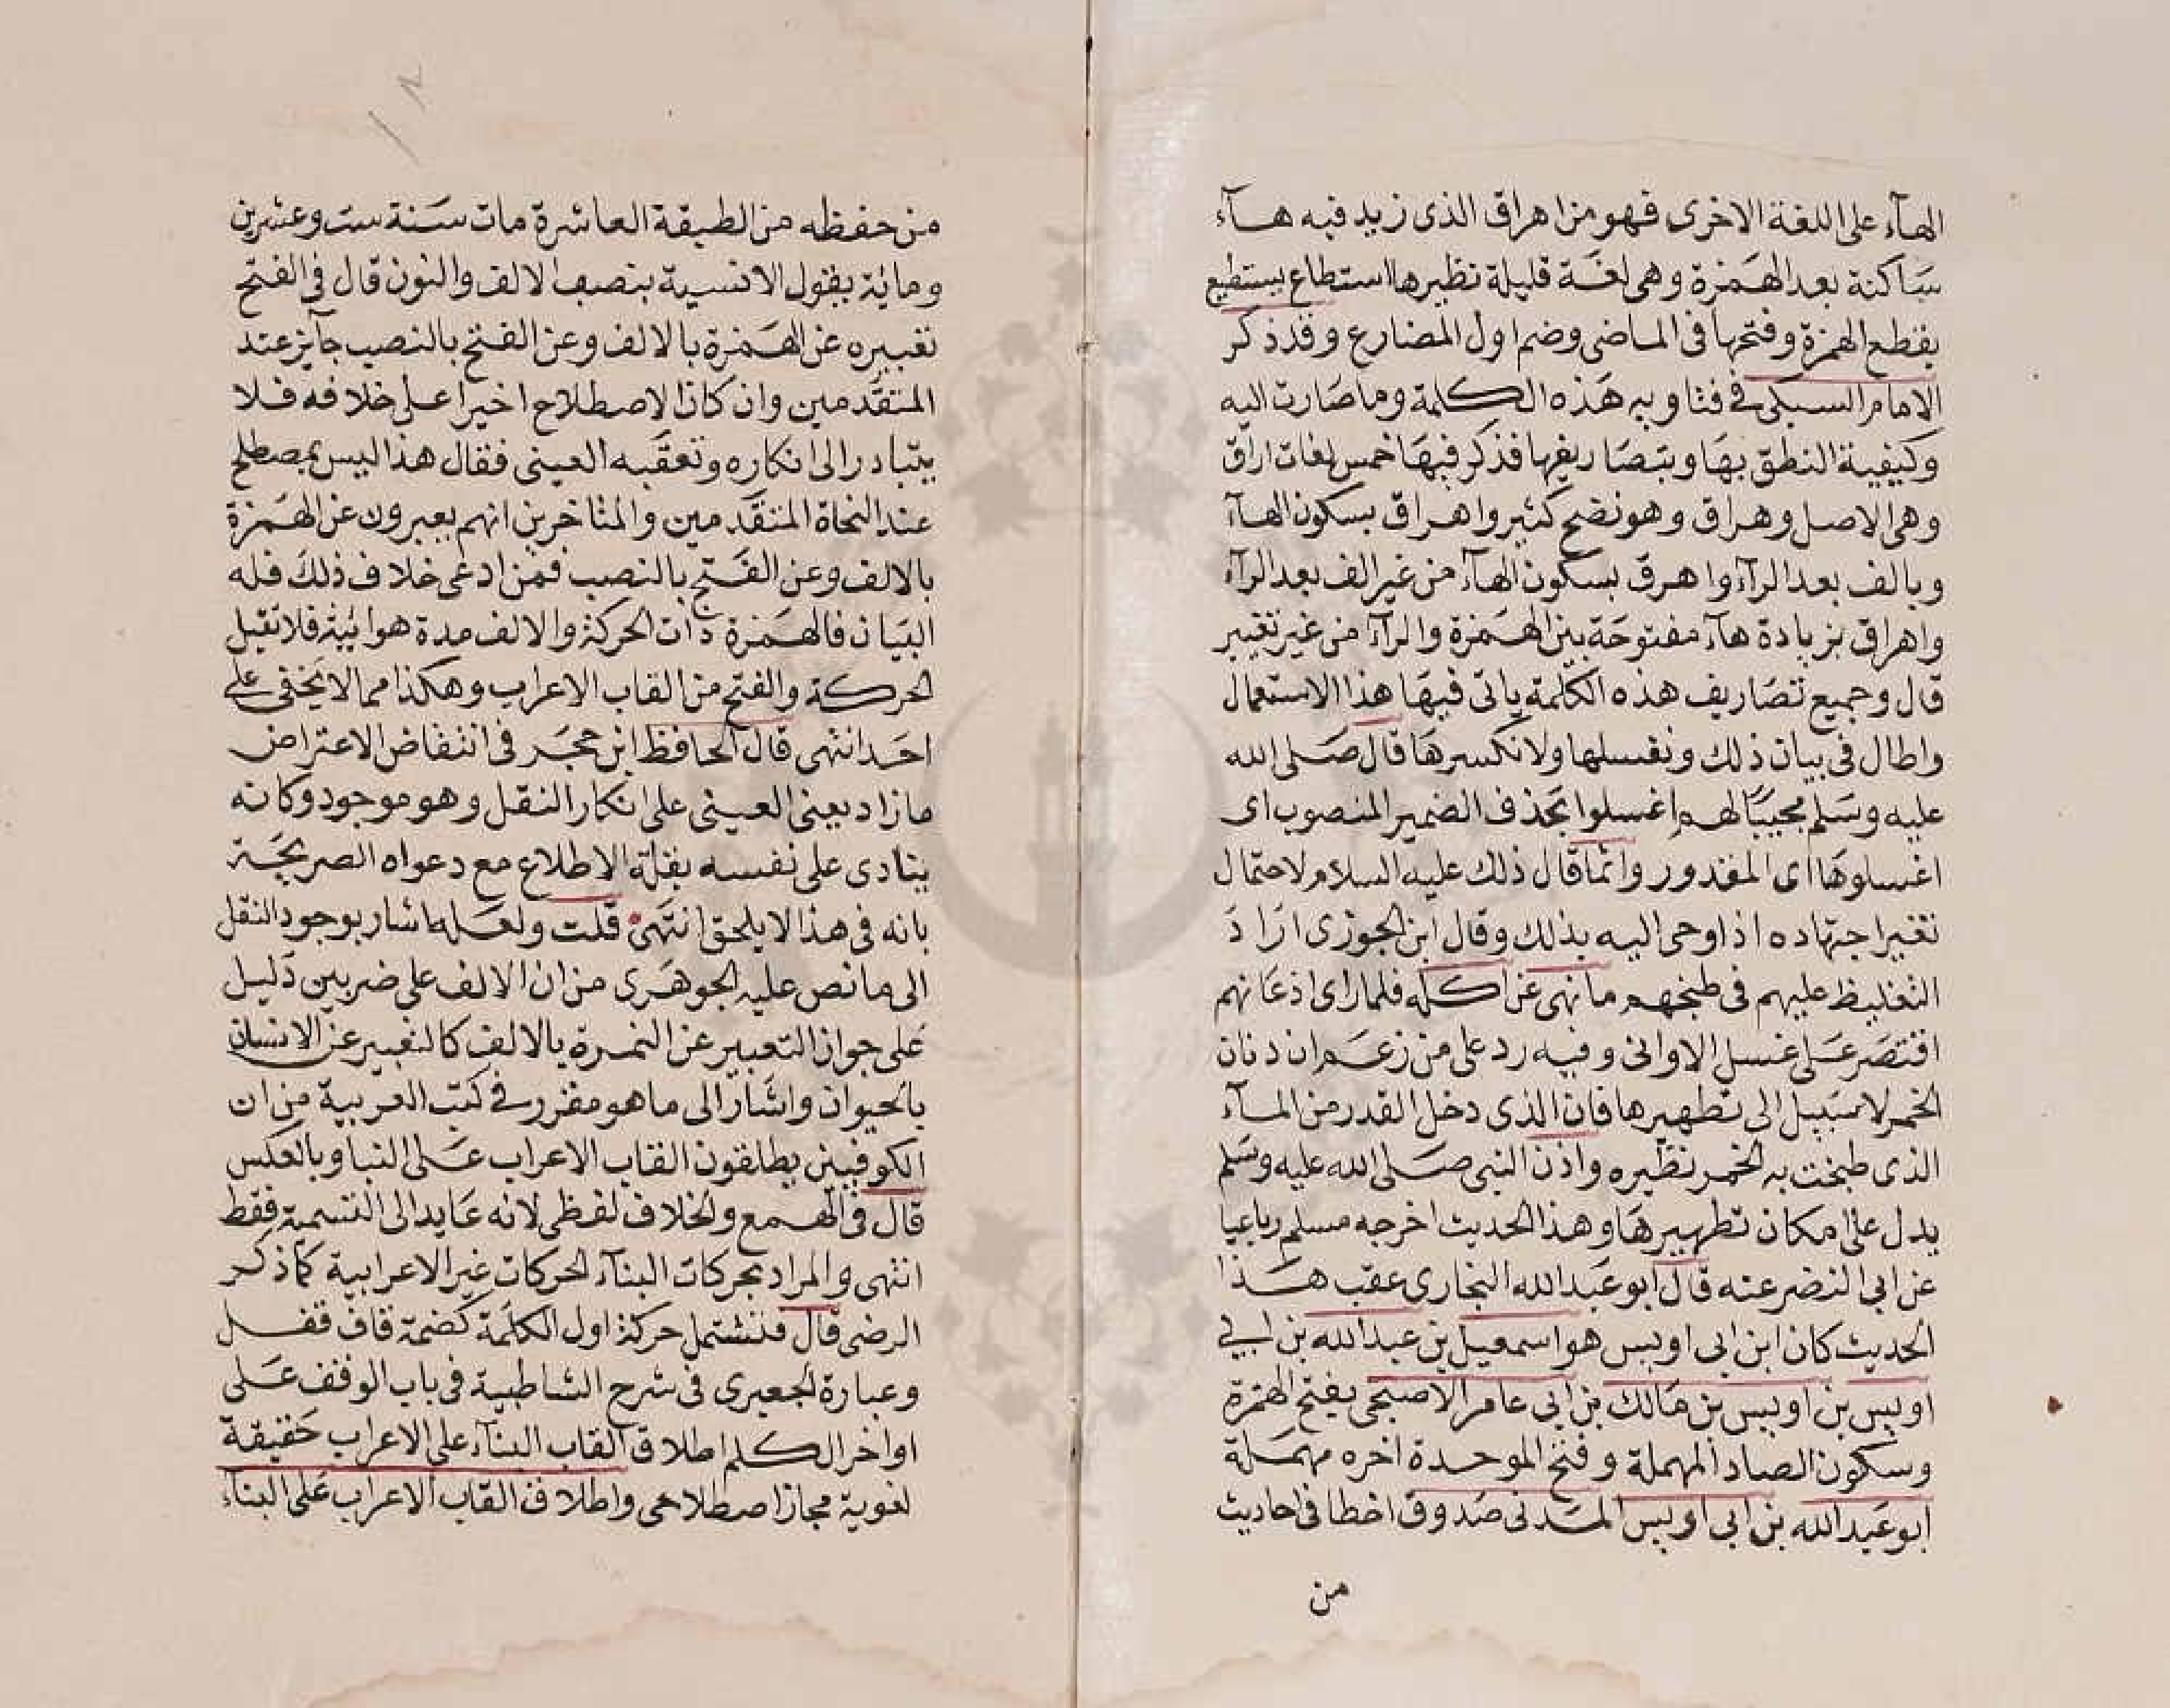 الهآء على اللغة الاخرى فهو من اهراق الذى زيد فيه هآء
ساكنة بعد الهمزة وهى لغة قليلة نظيرها استطاع يستطيع
بقطع الهمزة وفتحها فى الماضى وضم اول المضارع وقد ذكر
الامام السبكى فى فتاويه هذه الكلمة وما صارت اليه
وكيفية النطق بها وبتصاريفها فذكر فيها خمس لغات اراق
وهى الاصل وهراق وهو نضح كثير واهراق بسكون الهآء
وبالف بعد الرآء واهرق بسكون الهآء من غير الف بعد الرآء
واهراق بزيادة هآء مفتوحة بين الهمزة والرآء من غير تغيير
قال وجميع تصاريف هذه الكلمة ياتى فيها هذا الاستعمال
واطال فى بيان ذلك ونغسلها ولا نكسرها قال صلى الله
عليه وسلم مجيبا لهم اغسلوا بحذف الضمير المنصوب اى
اغسلوها اى المقدور وانما قال ذلك عليه السلام لاحتمال
تغير اجتهاده اذ اوحى اليه بذلك وقال ابن الجوزى اراد
التغليظ عليهم فى طبخهم ما نهى عن اكله فلما راى اذعانهم
اقتصر على غسل الاوانى وفيه رد على من زعم ان دنان
الخمر لا سبيل الى تطهيرها فان الذى دخل القدر من المآء
الذى طبخت به الخمر نظيره واذن النبى صلى الله عليه وسلم
يدل على امكان تطهيرها وهذا الحديث اخرجه مسلم رباعيا
عن ابى النضر عنه قال ابو عبد الله البخارى عقب هذا
الحديث كان ابن ابى اويس هو اسمعيل بن عبد الله بن ابى
اويس بن اويس بن مالك بن ابى عامر الاصبحى بفتح الهمزة
وسكون الصاد المهملة وفتح الموحدة اخره مهملة
ابو عبد الله بن ابى اويس المدنى صدوق اخطا فى احاديث
من
من حفظه من الطبقة العاشرة مات سنة ست وعشرين
ومائة يقول الانسية بنصب الالف والنون قال فى الفتح
تعبيره عن الهمزة بالالف وعن الفتح بالنصب جآئز عند
المتقدمين وان كان الاصطلاح اخيرا على خلافه فلا
يتبادر الى انكاره وتعقبه العينى فقال هذا ليس بمصطلح
عند النحاة المتقدمين والمتاخرين انهم يعبرون عن الهمزة
بالالف وعن الفتح بالنصب فمن ادعى خلاف ذلك فله
البيان فالهمزة ذات الحركة والالف مدة هوائية فلا تقبل
الحركة والفتح من القاب الاعراب وهكذا مما لا يخفى على
احد انتهى قال الحافظ ابن حجر فى انتفاض الاعتراض
ما زاد يعنى العينى على انكار النقل وهو موجود وكانه
ينادى على نفسه بقلة الاطلاع مع دعواه الصريحة
بانه فى هذا لا يلحق انتهى قلت ولعله اشار بوجود النقل
الى ما نص عليه الجوهرى من ان الالف على ضربين دليل
على جواز التعبير عن النمرة بالالف كالتعبير عن الانسان
بالحيوان واشار الى ما هو مقرر فى كتب العربية من ان
الكوفيين يطلقون القاب الاعراب على البنا وبالعكس
قال فى الهمع والخلاف لفظى لانه عايد الى التسمية فقط
انتهى والمراد بحركات البنآء الحركات غير الاعرابية كما ذكر
الرضى قال فتشتمل حركة اول الكلمة كضمة قاف قفل
وعبارة الجعبرى فى شرح الشاطبية فى باب الوقف على
اواخر الكلم اطلاق القاب البنآء على الاعراب حقيقة
لغوية مجاز اصطلاحى واطلاق القاب الاعراب على البنآء